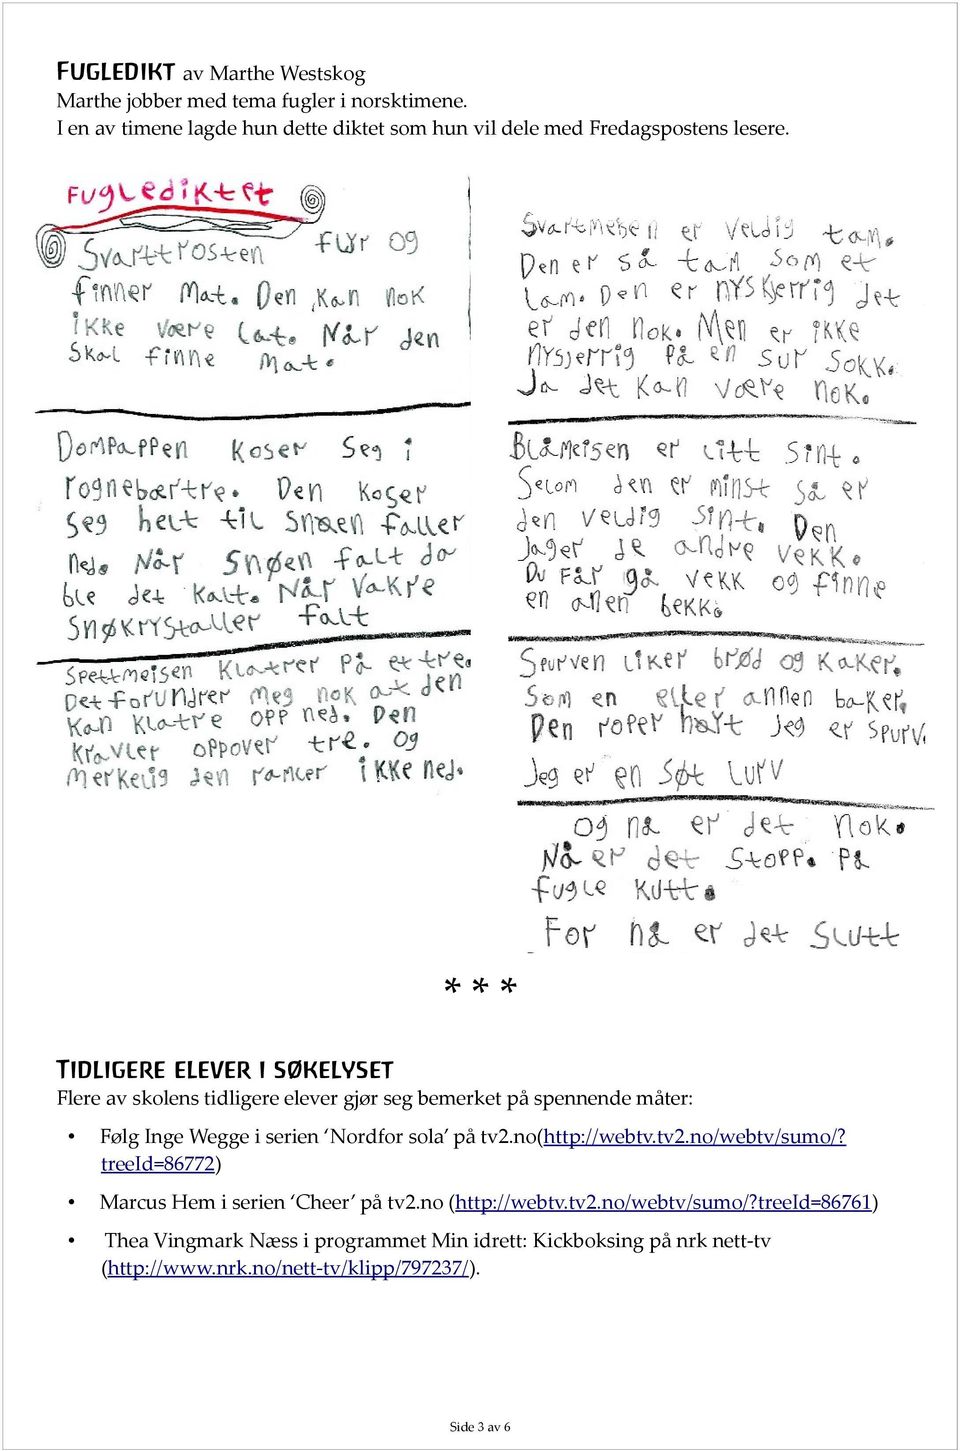 FUGLEDIKT av Marthe Westskog
Marthe jobber med tema fugler i norsktimene.
I en av timene lagde hun dette diktet som hun vil dele med Fredagspostens lesere.
Fuglediktet
Svarttrosten flyr og
finner Mat. Den kan nok
ikke være lat. Når den
Skal finne mat.
Dompappen koser seg i
rognebærtre. Den koser
seg helt til snøen faller
ned. Når snøen falt da
ble det kalt. Når vakre
snøkrystaller falt
Spettmeisen klatrer på et tre.
Det forundrer meg nok at den
kan klatre opp ned. Den
kravler oppover tre. og
merkelig den ramler ikke ned.
Svartmeisen er veldig tam.
Den er så tam som et
lam. Den er nyskjerrig det
er den nok. Men er ikke
nysjerrig på en sur sokk.
Ja det kan være nok.
Blåmeisen er litt sint.
Selom den er minst så er
den veldig sint. Den
jager de andre vekk.
Du får gå vekk og finne
en anen bekk.
Spurven liker brød og kaker.
Som en eller annen baker.
Den roper høyt jeg er spurv.
Jeg er en søt lurv
Og nå er det nok.
Nå er det stopp. på
fugle kutt.
For nå er det slutt
* * *
TIDLIGERE ELEVER I SØKELYSET
Flere av skolens tidligere elever gjør seg bemerket på spennende måter:
• Følg Inge Wegge i serien ‘Nordfor sola’ på tv2.no(http://webtv.tv2.no/webtv/sumo/?
treeId=86772)
• Marcus Hem i serien ‘Cheer’ på tv2.no (http://webtv.tv2.no/webtv/sumo/?treeId=86761)
• Thea Vingmark Næss i programmet Min idrett: Kickboksing på nrk nett-tv
(http://www.nrk.no/nett-tv/klipp/797237/).
Side 3 av 6